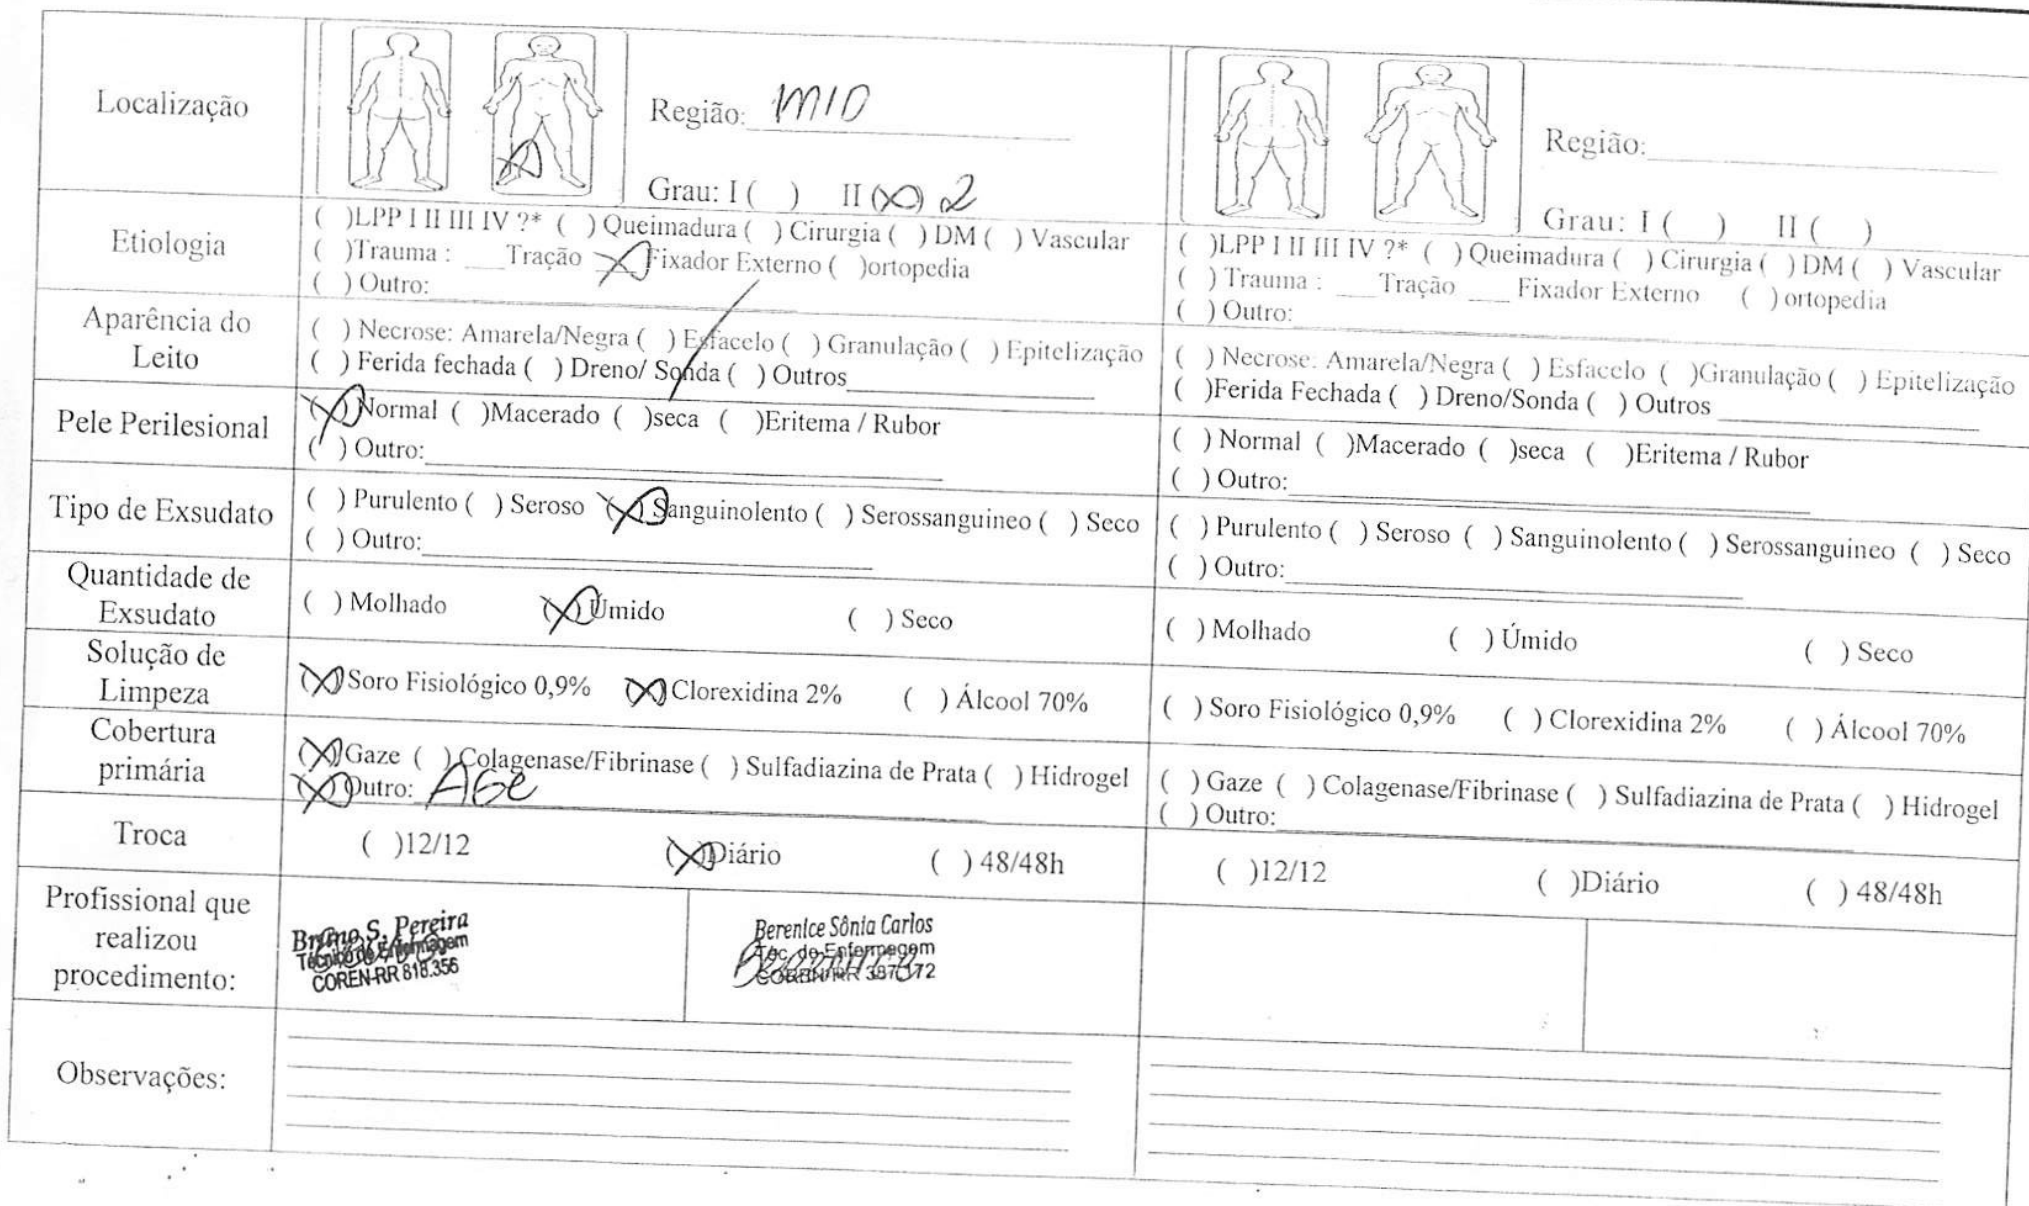 Localização
Região: MID
Grau: I ( ) II (X) 2
Região:
Grau: I ( ) II ( )
Etiologia
( )LPP I II III IV ?* ( ) Queimadura ( ) Cirurgia ( ) DM ( ) Vascular
( )Trauma : ___Tração X Fixador Externo ( )ortopedia
( ) Outro:
( )LPP I II III IV ?* ( ) Queimadura ( ) Cirurgia ( ) DM ( ) Vascular
( ) Trauma : ___Tração ___ Fixador Externo ( ) ortopedia
( ) Outro:
Aparência do
Leito
( ) Necrose: Amarela/Negra ( ) Esfacelo ( ) Granulação ( ) Epitelização
( ) Ferida fechada ( ) Dreno/ Sonda ( ) Outros
( ) Necrose: Amarela/Negra ( ) Esfacelo ( )Granulação ( ) Epitelização
( )Ferida Fechada ( ) Dreno/Sonda ( ) Outros
Pele Perilesional
(X) Normal ( )Macerado ( )seca ( )Eritema / Rubor
( ) Outro:
( ) Normal ( )Macerado ( )seca ( )Eritema / Rubor
( ) Outro:
Tipo de Exsudato
( ) Purulento ( ) Seroso (X) Sanguinolento ( ) Serossanguineo ( ) Seco
( ) Outro:
( ) Purulento ( ) Seroso ( ) Sanguinolento ( ) Serossanguineo ( ) Seco
( ) Outro:
Quantidade de
Exsudato
( ) Molhado (X) Úmido ( ) Seco
( ) Molhado ( ) Úmido ( ) Seco
Solução de
Limpeza
(X) Soro Fisiológico 0,9% (X) Clorexidina 2% ( ) Álcool 70%
( ) Soro Fisiológico 0,9% ( ) Clorexidina 2% ( ) Álcool 70%
Cobertura
primária
(X) Gaze ( ) Colagenase/Fibrinase ( ) Sulfadiazina de Prata ( ) Hidrogel
(X) Outro: AGE
( ) Gaze ( ) Colagenase/Fibrinase ( ) Sulfadiazina de Prata ( ) Hidrogel
( ) Outro:
Troca
( )12/12 (X)Diário ( ) 48/48h
( )12/12 ( )Diário ( ) 48/48h
Profissional que
realizou
procedimento:
Bruno S. Pereira
Técnico de Enfermagem
COREN-RR 818.356
Berenice Sônia Carlos
Téc. de Enfermagem
COREN/RR 387.172
Observações: